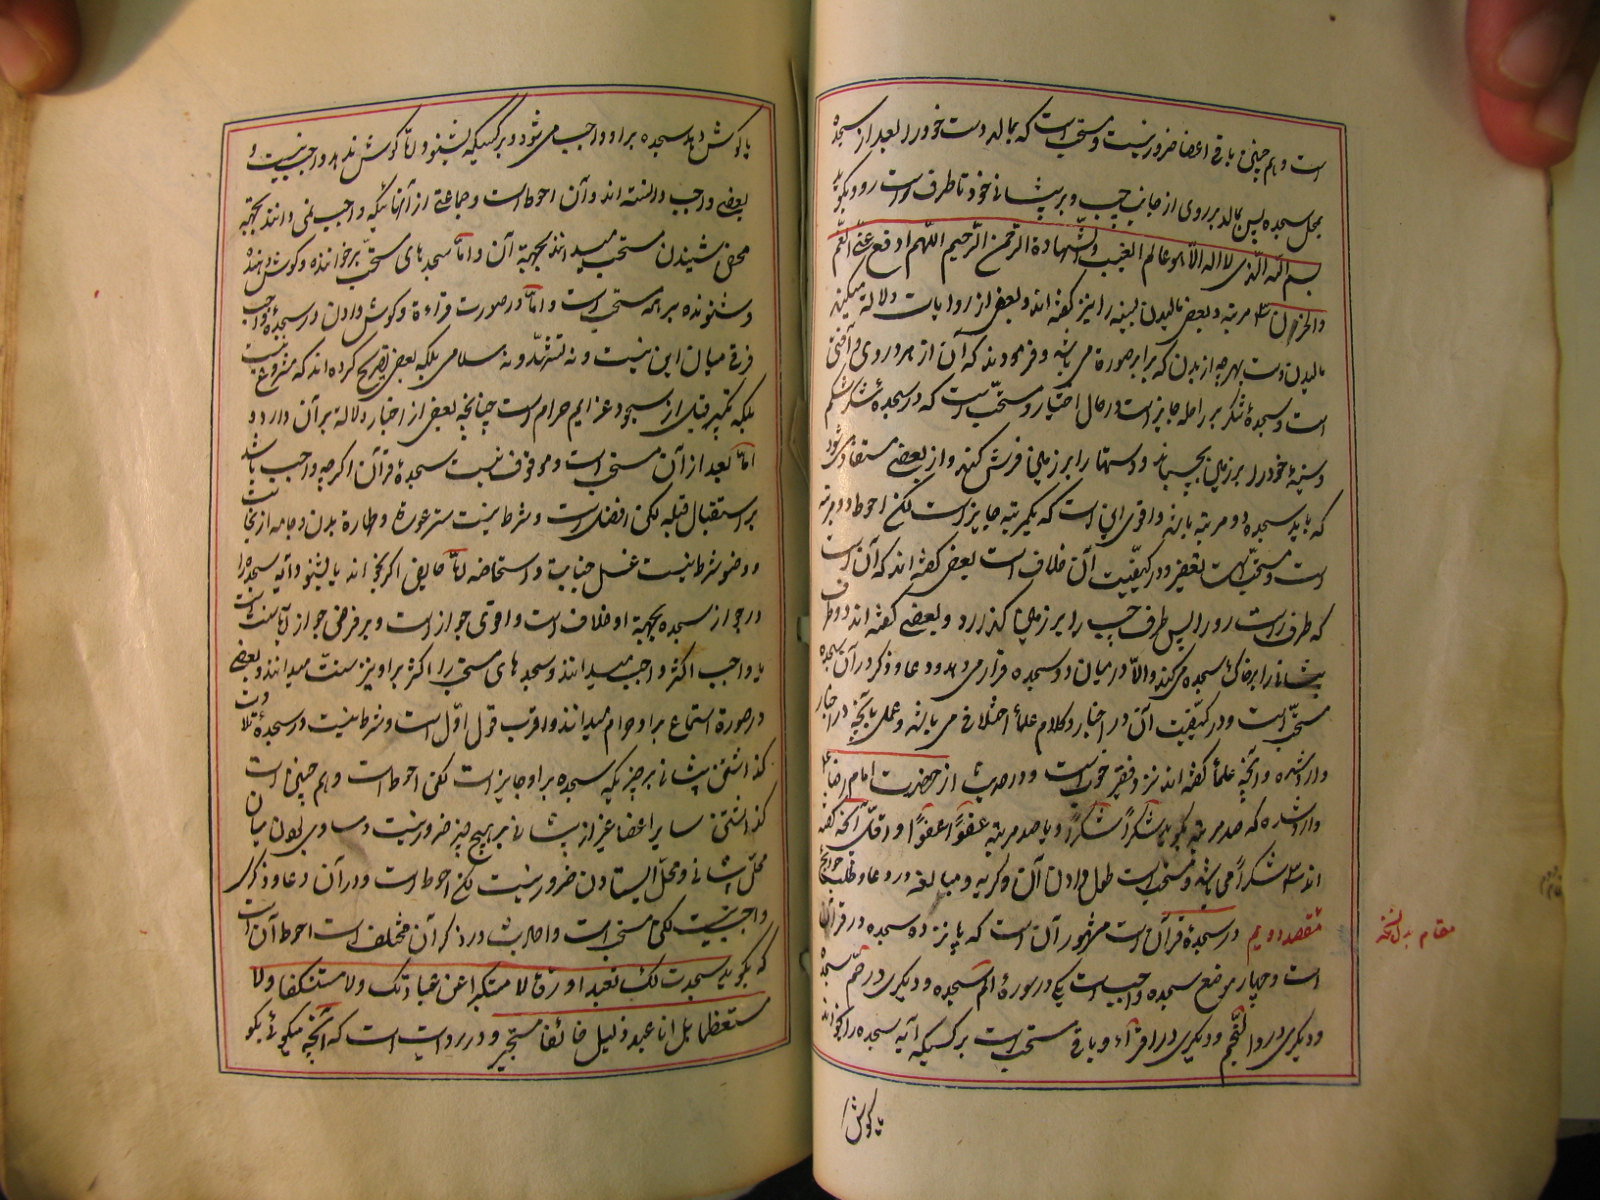 است و هم چنین باقی اعضا ضرور نیست و مستحب است که بمالد دست خود را بعد از سجده
بمحل سجده پس بمالد بر روی از جانب چپ و بر پیشانی خود تا طرف راست رو و بگوید
بسم الله الذی لا اله الا هو عالم الغیب والشهادة الرحمن الرحیم اللهم اذهب عنی الغم
والحزن سه مرتبه و بعضی مالیدن سینه را نیز گفته اند و بعضی از روایات دلالة میکند
مالیدن دست بهر چه از بدن که برابر صورة می باشد و فرمودند که آن از هر دردی و آفتی
است و سجدهٔ شکر بر راحله جایز است در حال اختیار و مستحب است که در سجدهٔ شکر شکم
و سینهٔ خود را بر زمین بچسپاند و دستها را بر زمین فرش کند و از بعضی مستفاد می شود
که باید سجده دو مرتبه باشد و اقوی این است که یکمرتبه جایز است لکن احوط دو مرتبه
است و مستحب است تعفیر و در کیفیت آن خلاف است بعضی گفته اند که آن است
که طرف راست رو را پس طرف چپ را بر زمین گذارد و بعضی گفته اند دو طرف
پیشانی را بر خاک سجده می کند والا در میان دو سجده قرار می دهد و دعا و ذکر در آن سجده
مستحب است و در کیفیت آن در اخبار و کلام علما اختلاف می باشد و عمل بآنچه در اخبار
وارد شده و آنچه علما گفته اند نزد فقیر خوب است و در حدیث از حضرت امام رضا ع
وارد شده که صد مرتبه بگوید شکراً شکراً و یا صد مرتبه عفواً عفواً و اقل آنچه گفته
اند سه شکراً می باشد و مستحب است طول دادن آن و گریه و مبالغه در دعا و طلب حوائج
مقصد دویم در سجدهٔ قرآن است مشهور آن است که پانزده سجده در قرآن
است و چهار موضع سجده واجب است یکی در سورهٔ الم سجده و دیگری در حم سجده
و دیگری در والنجم و دیگری در اقرأ و باقی مستحب است بر کسیکه آیه سجده را بخواند
یا گوش
مقام بدل نسخه
یا گوش دهد سجده بر او واجب می شود و بر کسیکه بشنود و اما گوش ندهد واجب نیست و
بعضی واجب دانسته اند و آن احوط است و جماعتی از آنها نیکه واجب نمی دانند بجهة
محض شنیدن مستحب میدانند بجهة آن و اما سجدهای مستحب بر خواننده و گوش دهنده
و شنونده بر همه مستحب است و اما در صورت قراءة و گوش دادن در سجدهٔ واجب
فرقی میان این نیست و نه تشهد و نه سلامی بلکه بعضی تصریح کرده اند که مشروع نیست
بلکه تکبیر قبل از سجود عزایم حرام است چنانچه بعضی از اخبار دلالة بر آن دارد و
اما بعد از آن مستحب است و موقوف نیست سجدهٔ قرآن اگر چه واجب باشد
بر استقبال قبله لکن افضل است و شرط نیست ستر عورة و طهارة بدن و جامه از نجاست
و وضو شرط نیست غسل جنابت و استحاضه اما حایض اگر بخواند یا بشنود آیه سجده را
در جواز سجده بجهة او خلاف است و اقوی جواز است و بر فرض جواز آیا سنت است
یا واجب اکثر واجب میدانند و سجدهای مستحب را اکثر بر او نیز سنت میدانند و بعضی
در صورة استماع بر او حرام میدانند و اقرب قول اول است و شرط نیست در سجدهٔ تلاوت
گذاشتن پیشانی بر چیزیکه سجده بر او جایز است لکن احوط است و هم چنین است
گذاشتن سایر اعضا غیر از پیشانی بر هیچ چیز ضرور نیست و مساوی بودن میان
محل پیشانی و محل ایستادن ضرور نیست لکن احوط است و در آن دعا و ذکری
واجب نیست لکن مستحب است و احادیث در ذکر آن مختلف است احوط آن است
که بگوید سجدت لک تعبدا و رقا لا مستکبرا عن عبادتک ولا مستنکفا ولا
مستعظما بل انا عبد ذلیل خائف مستجیر و در روایت است که آنچه میگوئی بگو